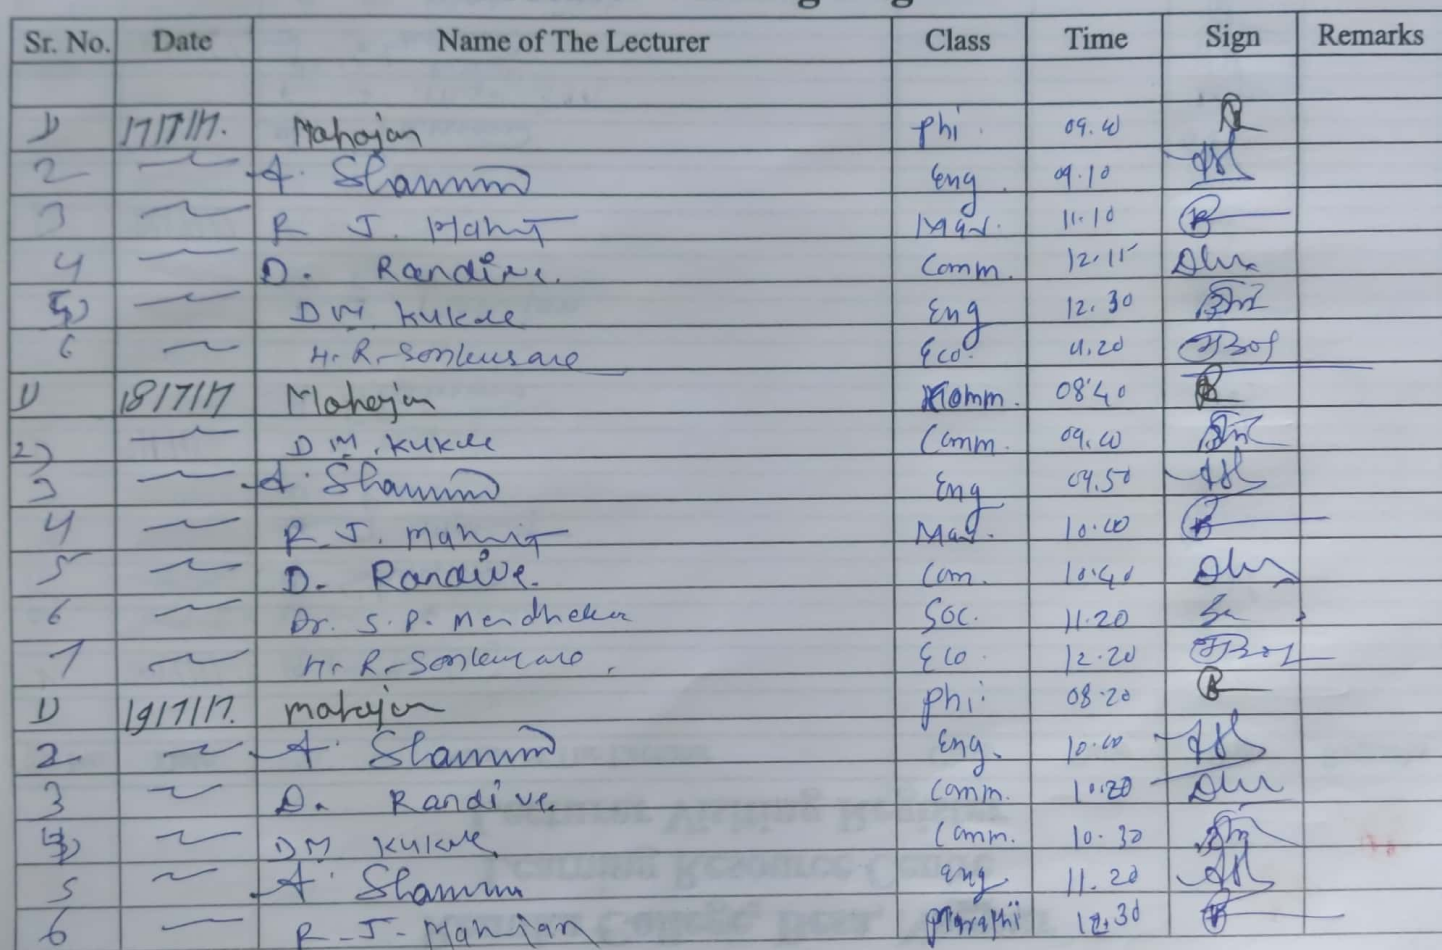 Sr. No. Date Name of The Lecturer Class Time Sign Remarks
1) 17/7/17. Mahajan Phi. 09.40
2 A. Shamim Eng. 09.10
3 R J. Mar. 11.10
4 D. Randive. Comm. 12.15
5) DM. Kukde Eng 12.30
6 H. R. Sonkusare Eco. 11.20
1) 18/7/17 Mahajan Comm. 08.40
2) DM. Kukde Comm. 09.40
3 A. Shamim Eng 09.50
4 R. J. Mar. 10.00
5 D. Randive. Com. 10.40
6 Dr. S. P. Soc. 11.20
7 H. R. Sonkusare. Eco. 12.20
1) 19/7/17. Mahajan Phi. 08.20
2 A. Shamim Eng. 10.00
3 D. Randive. Comm. 10.20
4) DM Kukde Comm. 10.30
5 A. Shamim Eng 11.20
6 R. J. Mahajan Marathi 12.30